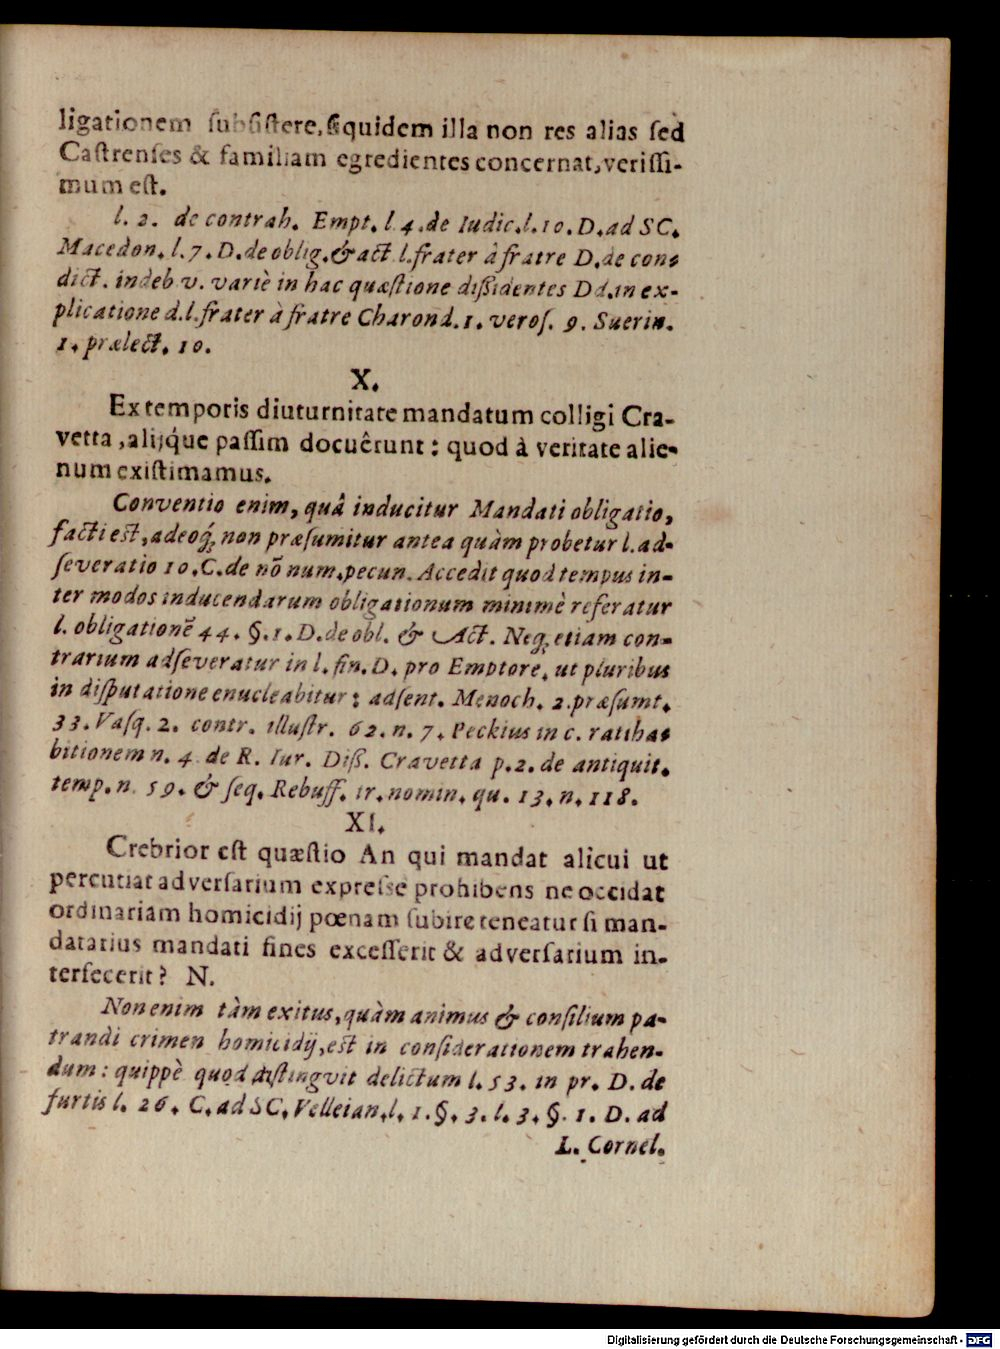 ligationem subsistere, siquidem illa non res alias sed
Castrenses & familiam egredientes concernat, verissi-
mum est.
l. 2. de contrah. Empt. l. 4. de Iudic. l. 10. D. ad SC.
Macedon. l. 7. D. de oblig. & act. l. frater à fratre D. de con-
dict. indeb. v. variè in hac quæstione dissidentes Dd. in ex-
plicatione d. l. frater à fratre Charond. 1. veros. 9. Suerin.
1. prælect. 10.
X.
Ex temporis diuturnitate mandatum colligi Cra-
vetta, alijq́ue passim docuêrunt: quod à veritate alie-
num existimamus.
Conventio enim, quâ inducitur Mandati obligatio,
facti est, adeoq́; non præsumitur antea quàm probetur l. ad-
severatio 10. C. de nō num. pecun. Accedit quod tempus in-
ter modos inducendarum obligationum minimè referatur
l. obligationē 44. §. 1. D. de obl. & Act. Neq; etiam con-
trarium adseveratur in l. fin. D. pro Emptore, ut pluribus
in disputatione enucleabitur: adsent. Menoch. 2. præsumt.
33. Vasq. 2. contr. illustr. 62. n. 7. Peckius in c. ratiha-
bitionem n. 4. de R. Iur. Diss. Cravetta p. 2. de antiquit.
temp. n. 59. & seq. Rebuff. tr. nomin. qu. 13. n. 118.
XI.
Crebrior est quæstio An qui mandat alicui ut
percutiat adversarium expresse prohibens ne occidat
ordinariam homicidij pœnam subire teneatur si man-
datarius mandati fines excesserit & adversarium in-
terfecerit? N.
Non enim tàm exitus, quàm animus & consilium pa-
trandi crimen homicidij, est in considerationem trahen-
dum: quippè quod distingvit delictum l. 53. in pr. D. de
furtis l. 26. C. ad SC. Velleian. l. 1. §. 3. l. 3. §. 1. D. ad
L. Cornel.
Digitalisierung gefördert durch die Deutsche Forschungsgemeinschaft - DFG